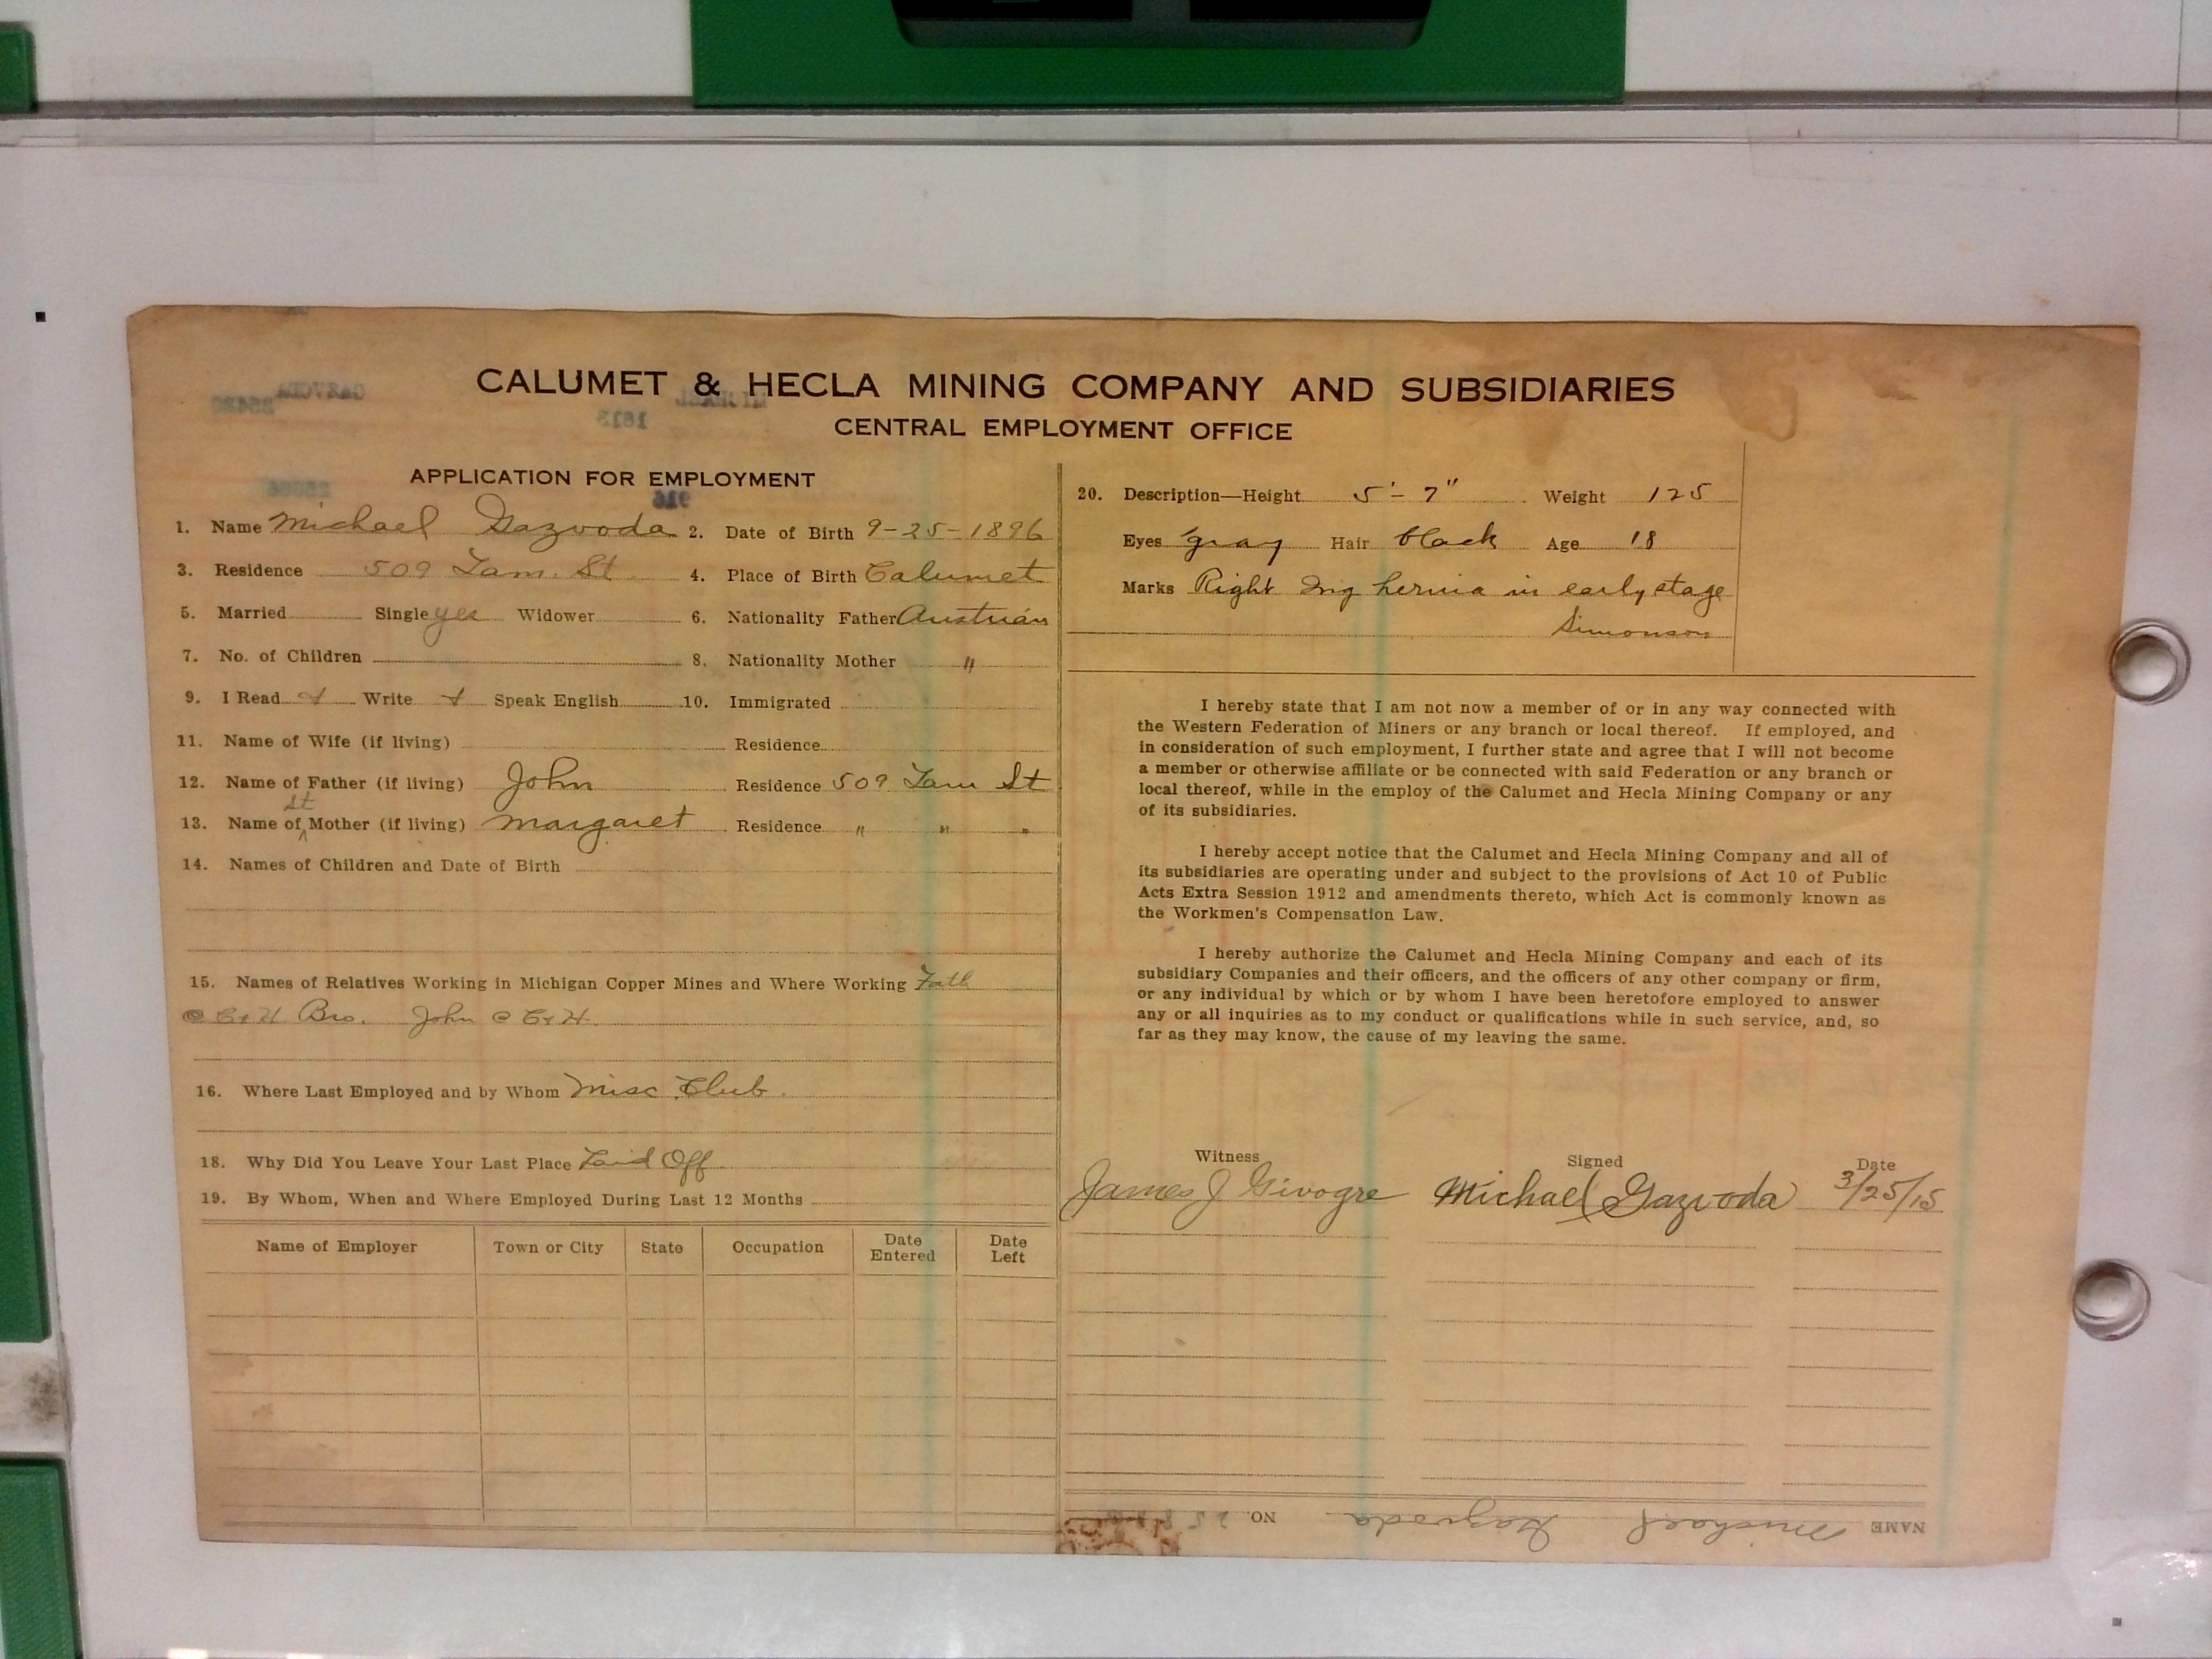 CALUMET & HECLA MINING COMPANY AND SUBSIDIARIES
CENTRAL EMPLOYMENT OFFICE
APPLICATION FOR EMPLOYMENT
1. Name Michael Gazvoda 2. Date of Birth 9-25-1896
3. Residence 509 Tam. St 4. Place of Birth Calumet
5. Married Single yes Widower 6. Nationality Father Austrian
7. No. of Children 8. Nationality Mother "
9. I Read Write Speak English 10. Immigrated
11. Name of Wife (if living) Residence
12. Name of Father (if living) John Residence 509 Tam St
St
13. Name of Mother (if living) Margaret Residence " " "
14. Names of Children and Date of Birth
15. Names of Relatives Working in Michigan Copper Mines and Where Working Fath
@ C&H Bro. John @ C&H.
16. Where Last Employed and by Whom Misc Club.
18. Why Did You Leave Your Last Place Laid Off
19. By Whom, When and Where Employed During Last 12 Months
Name of Employer Town or City State Occupation Date Entered Date Left
20. Description—Height 5'-7" Weight 125
Eyes gray Hair black Age 18
Marks Right Ing hernia in early stage
Simonson
I hereby state that I am not now a member of or in any way connected with
the Western Federation of Miners or any branch or local thereof. If employed, and
in consideration of such employment, I further state and agree that I will not become
a member or otherwise affiliate or be connected with said Federation or any branch or
local thereof, while in the employ of the Calumet and Hecla Mining Company or any
of its subsidiaries.
I hereby accept notice that the Calumet and Hecla Mining Company and all of
its subsidiaries are operating under and subject to the provisions of Act 10 of Public
Acts Extra Session 1912 and amendments thereto, which Act is commonly known as
the Workmen's Compensation Law.
I hereby authorize the Calumet and Hecla Mining Company and each of its
subsidiary Companies and their officers, and the officers of any other company or firm,
or any individual by which or by whom I have been heretofore employed to answer
any or all inquiries as to my conduct or qualifications while in such service, and, so
far as they may know, the cause of my leaving the same.
Witness Signed Date
James J Givogre Michael Gazvoda 3/25/15
NAME Michael Gazvoda NO.